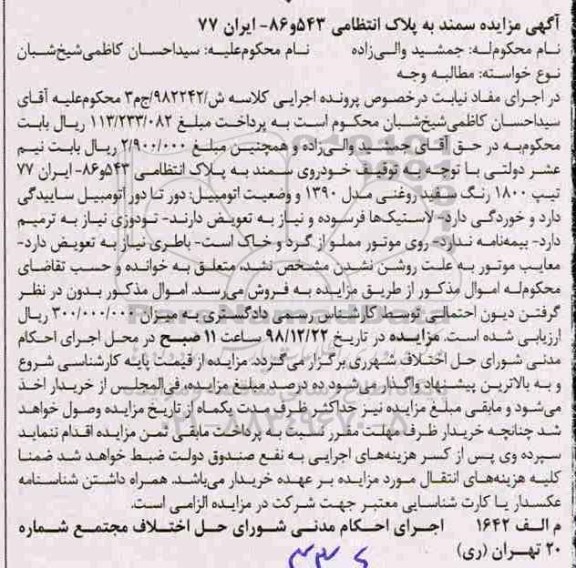 آگهی مزایده سمند به پلاک انتظامی ۵۴۳و۸۶- ایران ۷۷
نام محکوم‌له: جمشید والی‌زاده نام محکوم‌علیه: سیداحسان کاظمی‌شیخ‌شبان
نوع خواسته: مطالبه وجه
در اجرای مفاد نیابت درخصوص پرونده اجرایی کلاسه ش/۹۸۲۲۴۲/ج‌م۳ محکوم‌علیه آقای
سیداحسان کاظمی‌شیخ‌شبان محکوم است به پرداخت مبلغ ۱۱۳/۲۳۳/۰۸۲ ریال بابت
محکوم‌به در حق آقای جمشید والی‌زاده و همچنین مبلغ ۲/۹۰۰/۰۰۰ ریال بابت نیم
عشر دولتی با توجه به توقیف خودروی سمند به پلاک انتظامی ۵۴۳و۸۶- ایران ۷۷
تیپ ۱۸۰۰ رنگ سفید روغنی مدل ۱۳۹۰ و وضعیت اتومبیل: دور تا دور اتومبیل ساییدگی
دارد و خوردگی دارد- لاستیک‌ها فرسوده و نیاز به تعویض دارند- تودوزی نیاز به ترمیم
دارد- بیمه‌نامه ندارد- روی موتور مملو از گرد و خاک است- باطری نیاز به تعویض دارد-
معایب موتور به علت روشن نشدن مشخص نشد، متعلق به خوانده و حسب تقاضای
محکوم‌له اموال مذکور از طریق مزایده به فروش می‌رسد. اموال مذکور بدون در نظر
گرفتن دیون احتمالی توسط کارشناس رسمی دادگستری به میزان ۳۰۰/۰۰۰/۰۰۰ ریال
ارزیابی شده است. مزایده در تاریخ ۹۸/۱۲/۲۲ ساعت ۱۱ صبح در محل اجرای احکام
مدنی شورای حل اختلاف شهرری برگزار می‌گردد. مزایده از قیمت پایه کارشناسی شروع
و به بالاترین پیشنهاد واگذار می‌شود ده درصد مبلغ مزایده، فی‌المجلس از خریدار اخذ
می‌شود و مابقی مبلغ مزایده نیز حداکثر ظرف مدت یکماه از تاریخ مزایده وصول خواهد
شد چنانچه خریدار ظرف مهلت مقرر نسبت به پرداخت مابقی ثمن مزایده اقدام ننماید
سپرده وی پس از کسر هزینه‌های اجرایی به نفع صندوق دولت ضبط خواهد شد ضمنا
کلیه هزینه‌های انتقال مورد مزایده بر عهده خریدار می‌باشد. همراه داشتن شناسنامه
عکسدار یا کارت شناسایی معتبر جهت شرکت در مزایده الزامی است.
م الف ۱۶۴۲ اجرای احکام مدنی شورای حل اختلاف مجتمع شماره
۲۰ تهران (ری)